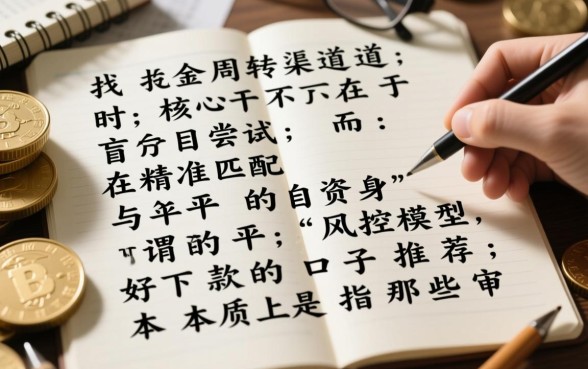 找 金周转渠道道；
时；核心干不在于
盲目尝试； 而：
在精准匹配
与年平 的自资身”
谓的平；“风控模型，
好下款的口子推荐；
本 本质上是 指那些审